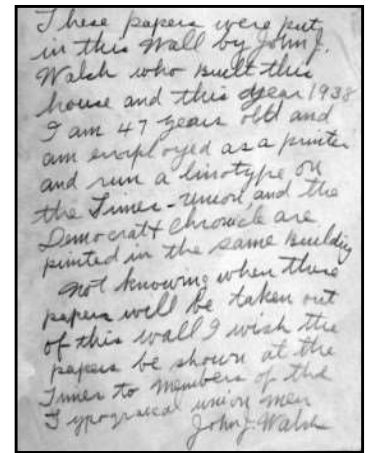 These papers were put
in this Wall by John J.
Walsh who built this
house and this year 1938
I am 47 years old and
am employed as a printer
and run a linotype on
the Times-Union, and the
Democrat & Chronicle are
printed in the same building
Not knowing when these
papers will be taken out
of this wall I wish the
papers be shown at the
Times to members of the
Typograical union men
John J. Walsh